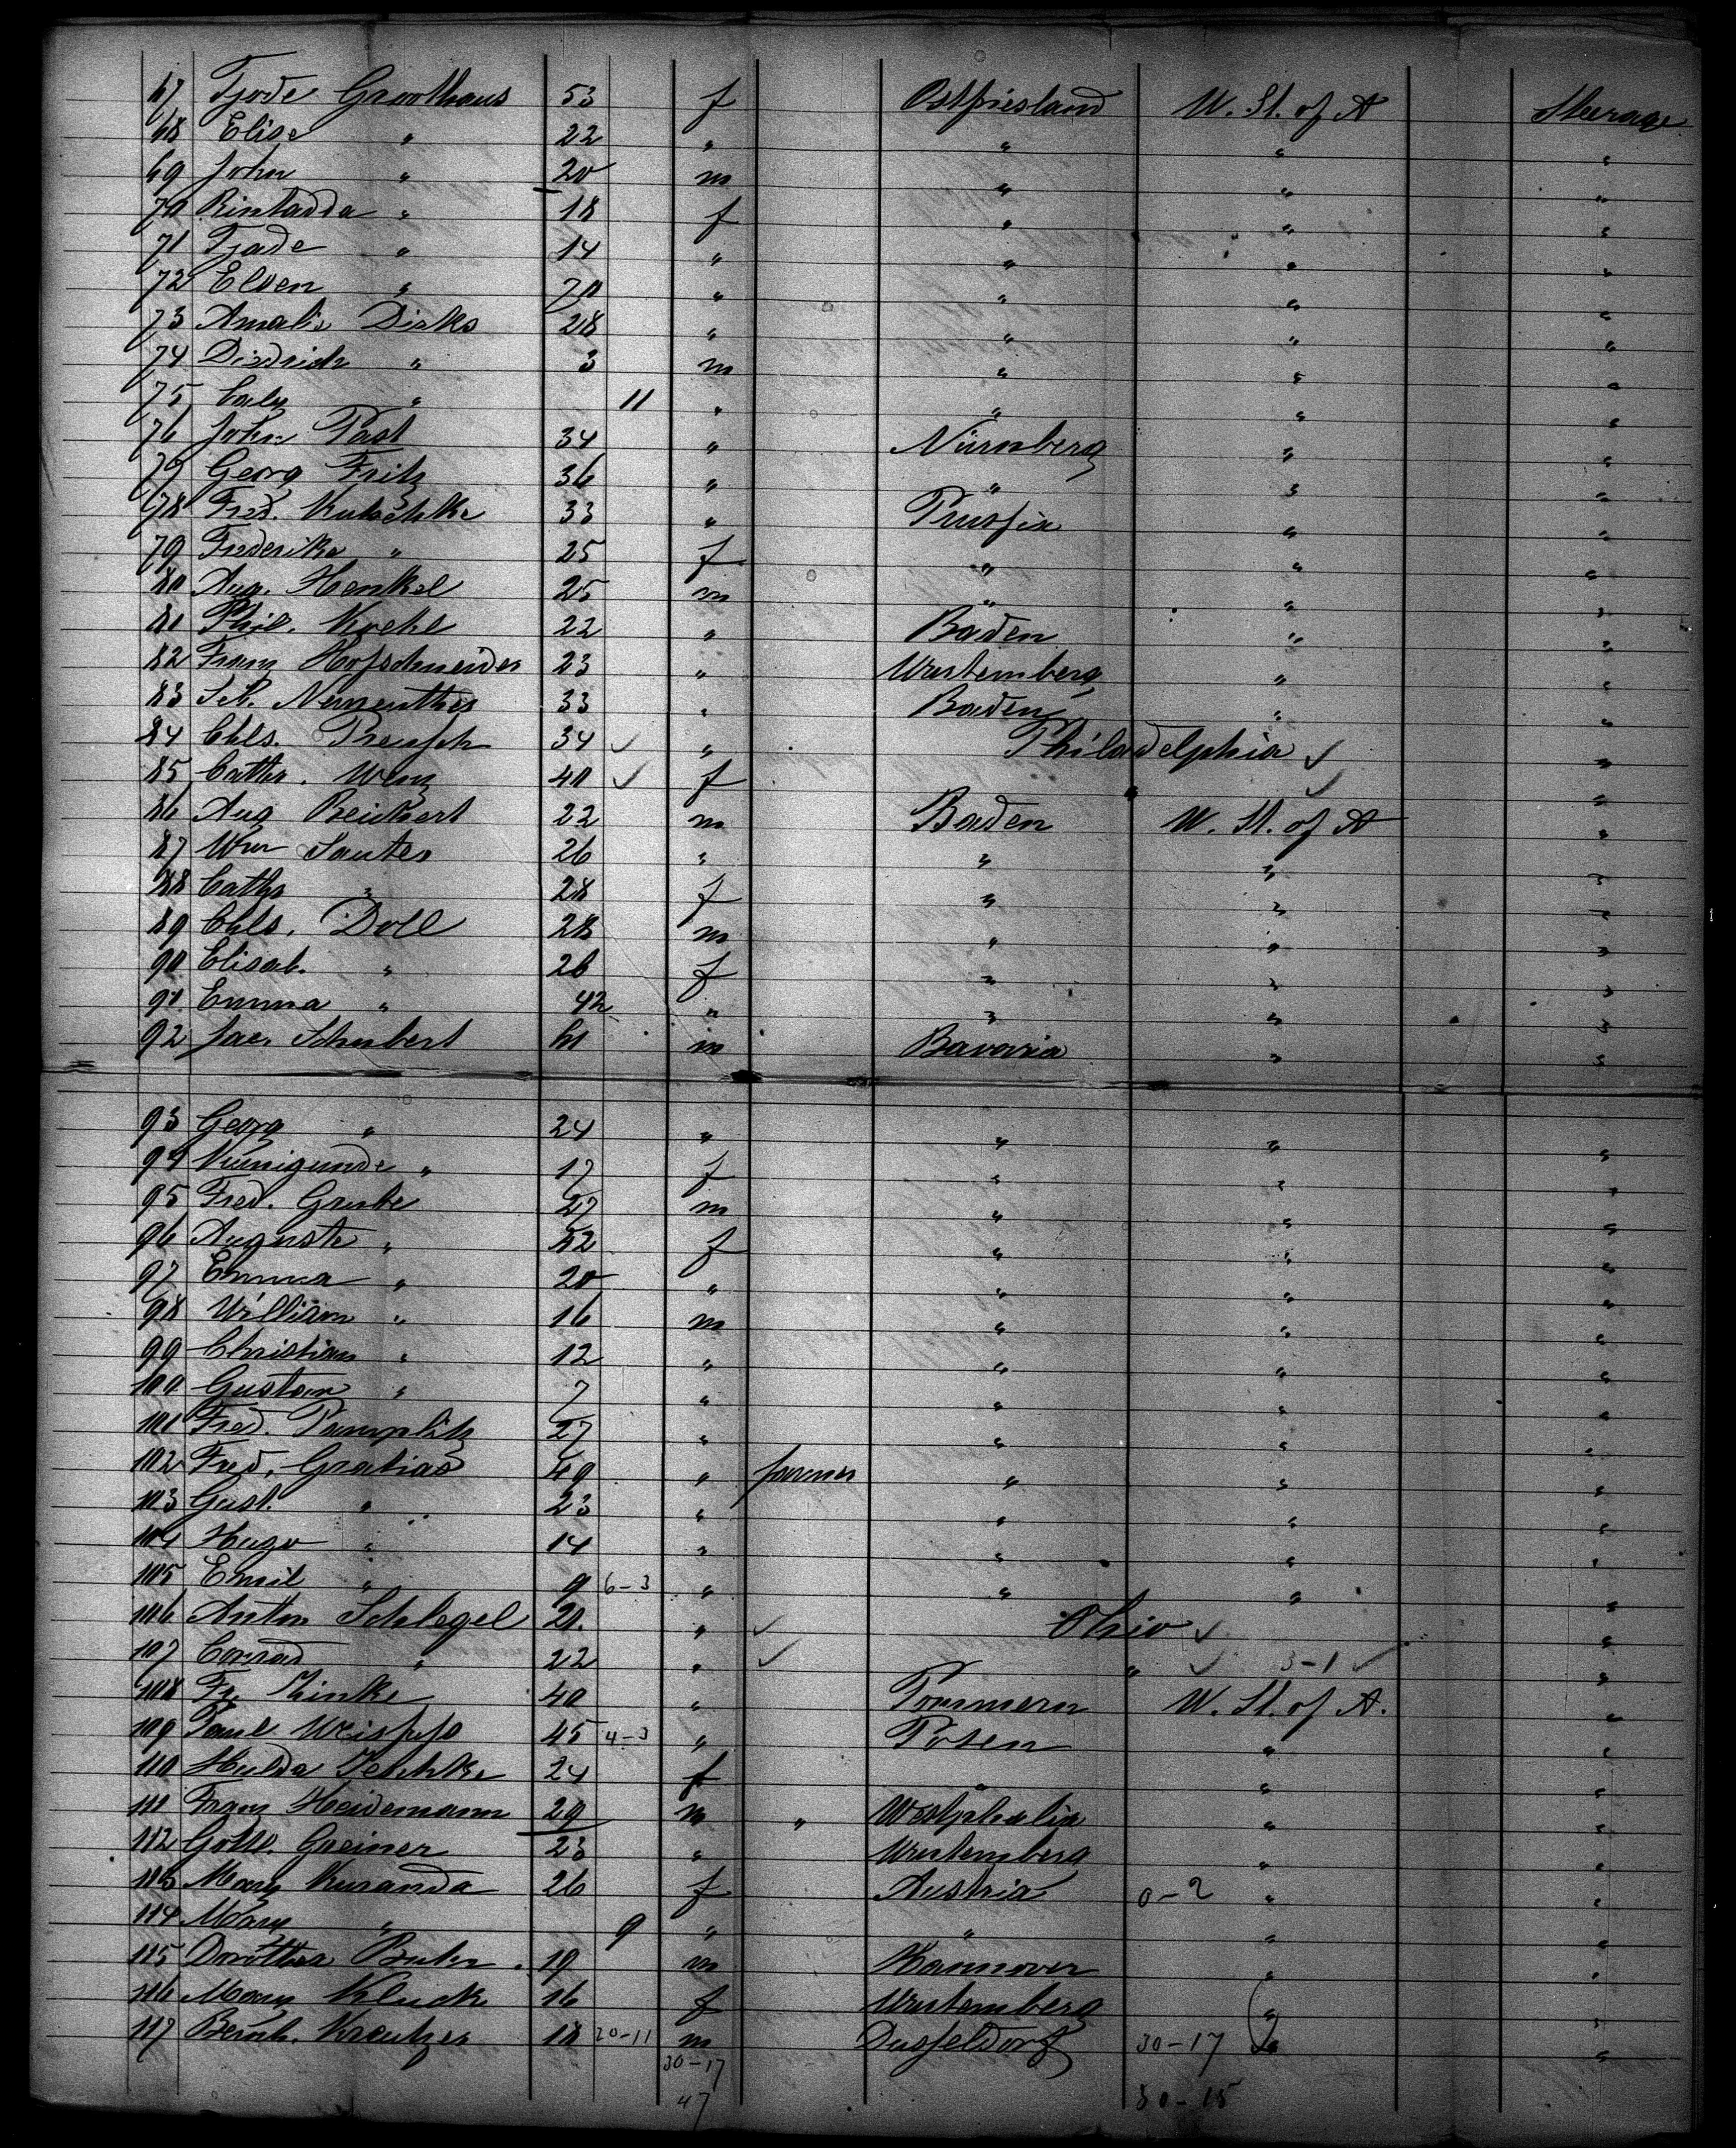 67 Tjode Groothaus 53 f Ostfriesland U. St. of A Steerage
68 Elise " 22 " " " "
69 John " 20 m " " "
70 Rintadda " 18 f " " "
71 Tjade " 14 " " " "
72 Elsen " 20 " " " "
73 Amalie Dirks 28 " " " "
74 Diedrich " 3 m " " "
75 Caly " 11 " " " "
76 John Past 34 " Nürnberg " "
77 Georg Fritz 36 " " " "
78 Fred. Kutschke 33 " Prussia " "
79 Frederike " 25 f " " "
80 Aug. Henkel 25 m " " "
81 Phil. Koehl 22 " Baden " "
82 Franz Hofschneider 23 " Wurtemberg " "
83 Seb. Nementher 33 " Baden " "
84 Chls. Preusch 34 " Philadelphia "
85 Cathr. Wenz 40 f " "
86 Aug Reichert 22 m Baden U. St. of A "
87 Wm Sauter 26 " " " "
88 Cathr " 28 f " " "
89 Chls. Doll 28 m " " "
90 Elisab. " 26 f " " "
91 Emma " " " " "
92 Jac. Schubert m Bavaria " "
93 Georg " 24 " " " "
94 Kunigunde " 17 f " " "
95 Fred. Grube 27 m " " "
96 Auguste " 52 f " " "
97 Emma " 20 " " " "
98 William " 16 m " " "
99 Christian " 12 " " " "
100 Gustav " 7 " " " "
101 Fred. Pamplitz 27 " " " "
102 Fred. Gratias 49 " farmer " " "
103 Gust. " 23 " " " "
104 Hugo " 14 " " " "
105 Emil " 9 6-3 " " " "
106 Anton Schlegel 21 " Ohio "
107 Conrad " 22 " " 3-1 "
108 Fr. Zinke 40 " Pommern U. St. of A. "
109 Paul 45 4-3 " Posen " "
110 Hulda Jeschke 24 f " " "
111 Franz Heidemann 29 m " Westphalia " "
112 Gottl. Greiner 23 " Wurtemberg " "
113 Mary Kuranda 26 f Austria 0-2 " "
114 Mary " 9 " " " "
115 Dorothea Bruhn 19 m Hannover " "
116 Mary Kluck 16 f Wurtemberg " "
117 Bernh. Kreutzer 18 20-11 m Dusseldorf 30-17 " "
30-17
47 80-15